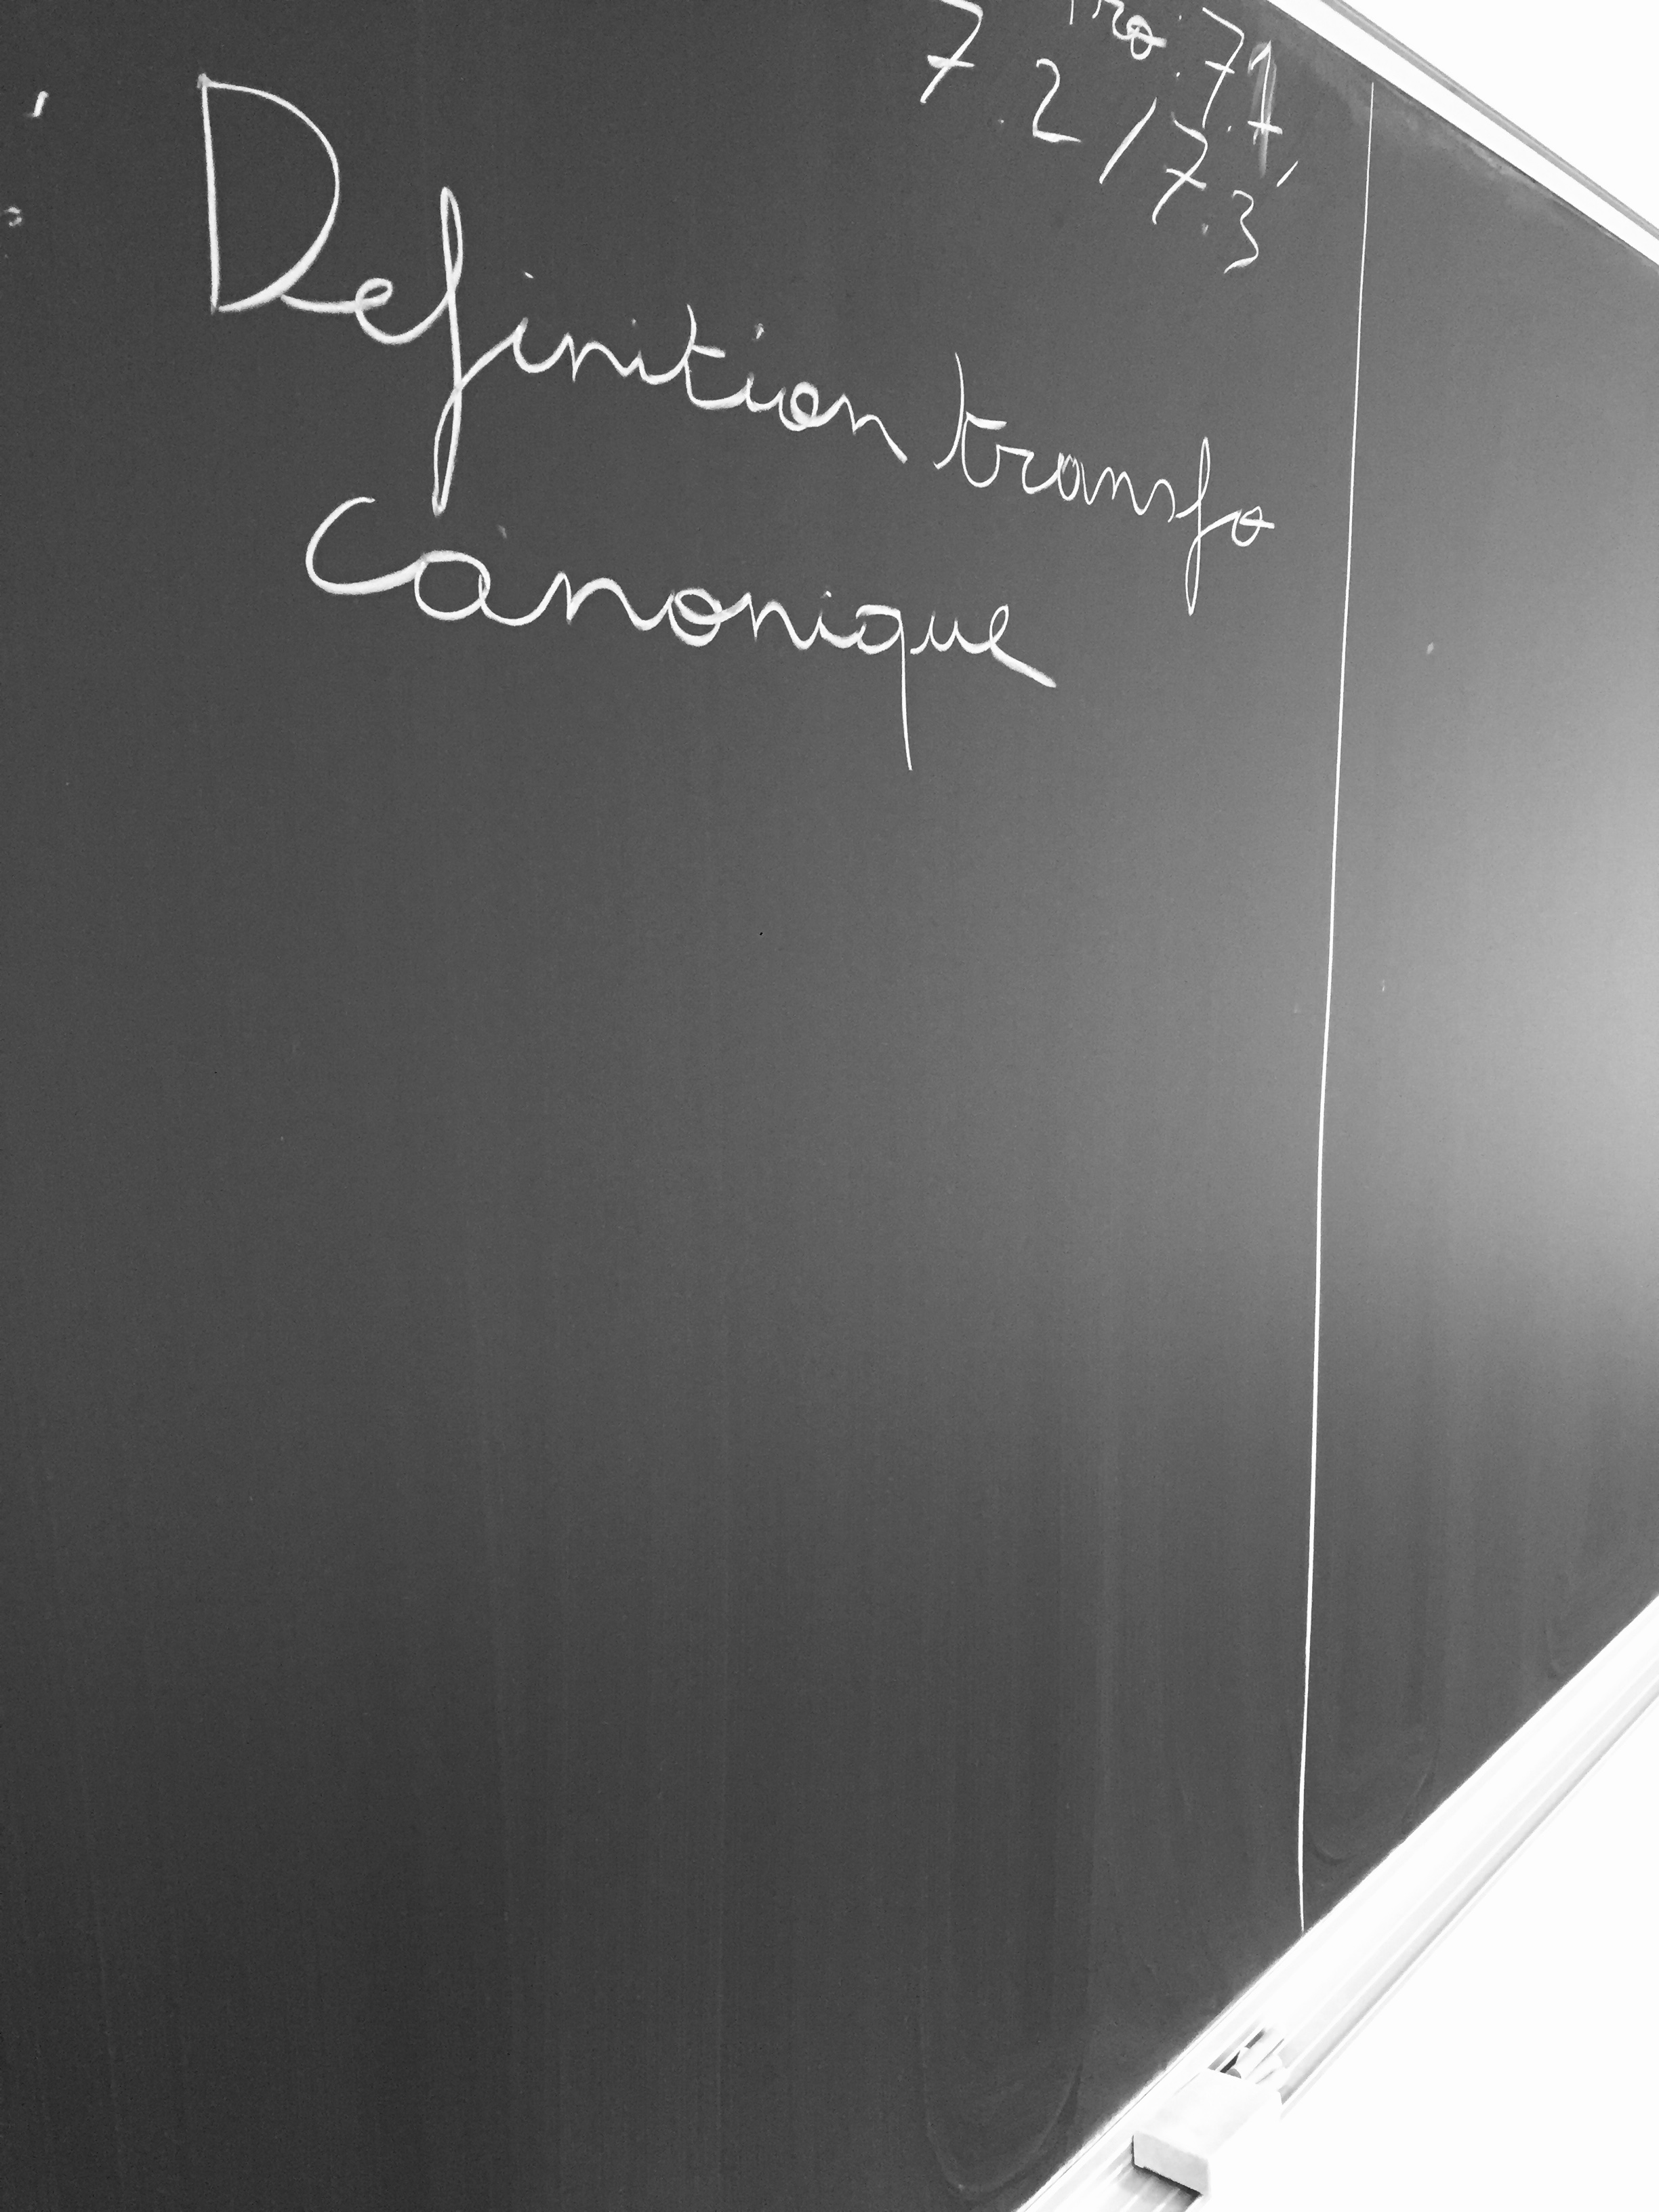 7.1,
7.2/7.3
Definition transfo
canonique